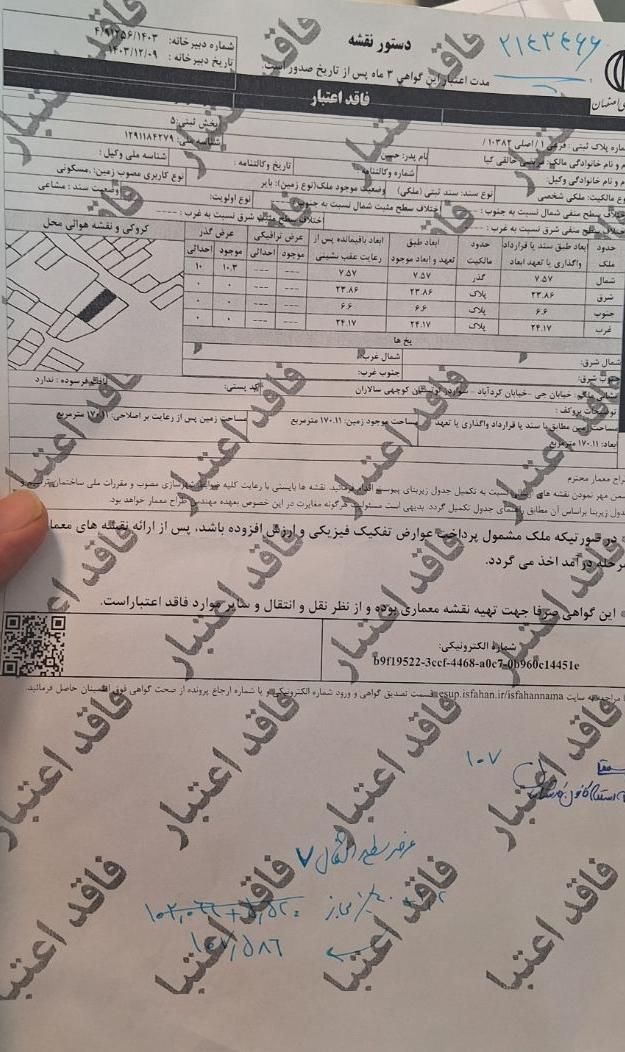 دستور نقشه
۲۱۴۳۴۶۶
شماره دبیرخانه: ۴/۹۱۲۵۶/۱۴۰۳
تاریخ دبیرخانه : ۱۴۰۳/۱۲/۰۹
مدت اعتبار این گواهی ۳ ماه پس از تاریخ صدور است.
فاقد اعتبار
شماره پلاک ثبتی: فرعی ۱ / اصلی ۱۰۳۸۲ / بخش ثبتی: ۵
نام و نام خانوادگی مالک: خالقی کیا نام پدر: حسین شناسه ملی: ۱۲۹۱۱۸۴۲۷۹
نام و نام خانوادگی وکیل: شماره وکالتنامه: تاریخ وکالتنامه : شناسه ملی وکیل:
نوع مالکیت: ملکی شخصی نوع سند: سند ثبتی (ملکی) وضعیت موجود ملک(نوع زمین): بایر نوع کاربری مصوب زمین: مسکونی
اختلاف سطح منفی شمال نسبت به جنوب: اختلاف سطح مثبت شمال نسبت به جنوب: نوع اولویت: وضعیت سند: مشاعی
اختلاف سطح منفی شرق نسبت به غرب: اختلاف سطح مثبت شرق نسبت به غرب:
حدود ملک ابعاد طبق سند یا قرارداد واگذاری یا تعهد ابعاد حدود مالکیت ابعاد طبق تعهد و ابعاد موجود ابعاد باقیمانده پس از رعایت عقب نشینی عرض ترافیکی عرض گذر
موجود احداثی موجود احداثی
شمال ۷.۵۷ گذر ۷.۵۷ ۷.۵۷ --- --- ۱۰.۳ ۱۰
شرق ۲۳.۸۶ پلاک ۲۳.۸۶ ۲۳.۸۶ --- --- ۰ ۰
جنوب ۶.۶ پلاک ۶.۶ ۶.۶ --- --- ۰ ۰
غرب ۲۴.۱۷ پلاک ۲۴.۱۷ ۲۴.۱۷ --- --- ۰ ۰
کروکی و نقشه هوائی محل
پخ ها
شمال شرق: شمال غرب:
جنوب شرق: جنوب غرب:
خیابان جی -خیابان کردآباد - کوچهی سالاران کد پستی: بافت فرسوده : ندارد
توضیحات بروکف :
مساحت زمین مطابق با سند یا قرارداد واگذاری یا تعهد ابعاد: ۱۷۰.۱۱ مترمربع مساحت موجود زمین: ۱۷۰.۱۱ مترمربع مساحت زمین پس از رعایت بر اصلاحی: ۱۷۰.۱۱ مترمربع
طراح معمار محترم
ضمن مهر نمودن نقشه های نسبت به تکمیل جدول زیربنای پیوست اقدام فرمائید. نقشه ها بایستی با رعایت کلیه ضوابط شهرسازی مصوب و مقررات ملی ساختمان ترسیم و
جدول زیربنا براساس آن مطابق راهنمای جدول تکمیل گردد. بدیهی است مسئولیت هرگونه مغایرت در این خصوص بعهده مهندس طراح معمار خواهد بود.
در صورتیکه ملک مشمول پرداخت عوارض تفکیک فیزیکی و ارزش افزوده باشد، پس از ارائه نقشه های معماری
مرحله درآمد اخذ می گردد.
این گواهی صرفا جهت تهیه نقشه معماری بوده و از نظر نقل و انتقال و سایر موارد فاقد اعتباراست.
شماره الکترونیکی:
b9f19522-3ccf-4468-a0c7-0b960c14451e
با مراجعه به سایت esup.isfahan.ir/isfahannama قسمت تصدیق گواهی و ورود شماره الکترونیکی و یا شماره ارجاع پرونده از صحت گواهی فوق اطمینان حاصل فرمائید.
۱۰۷